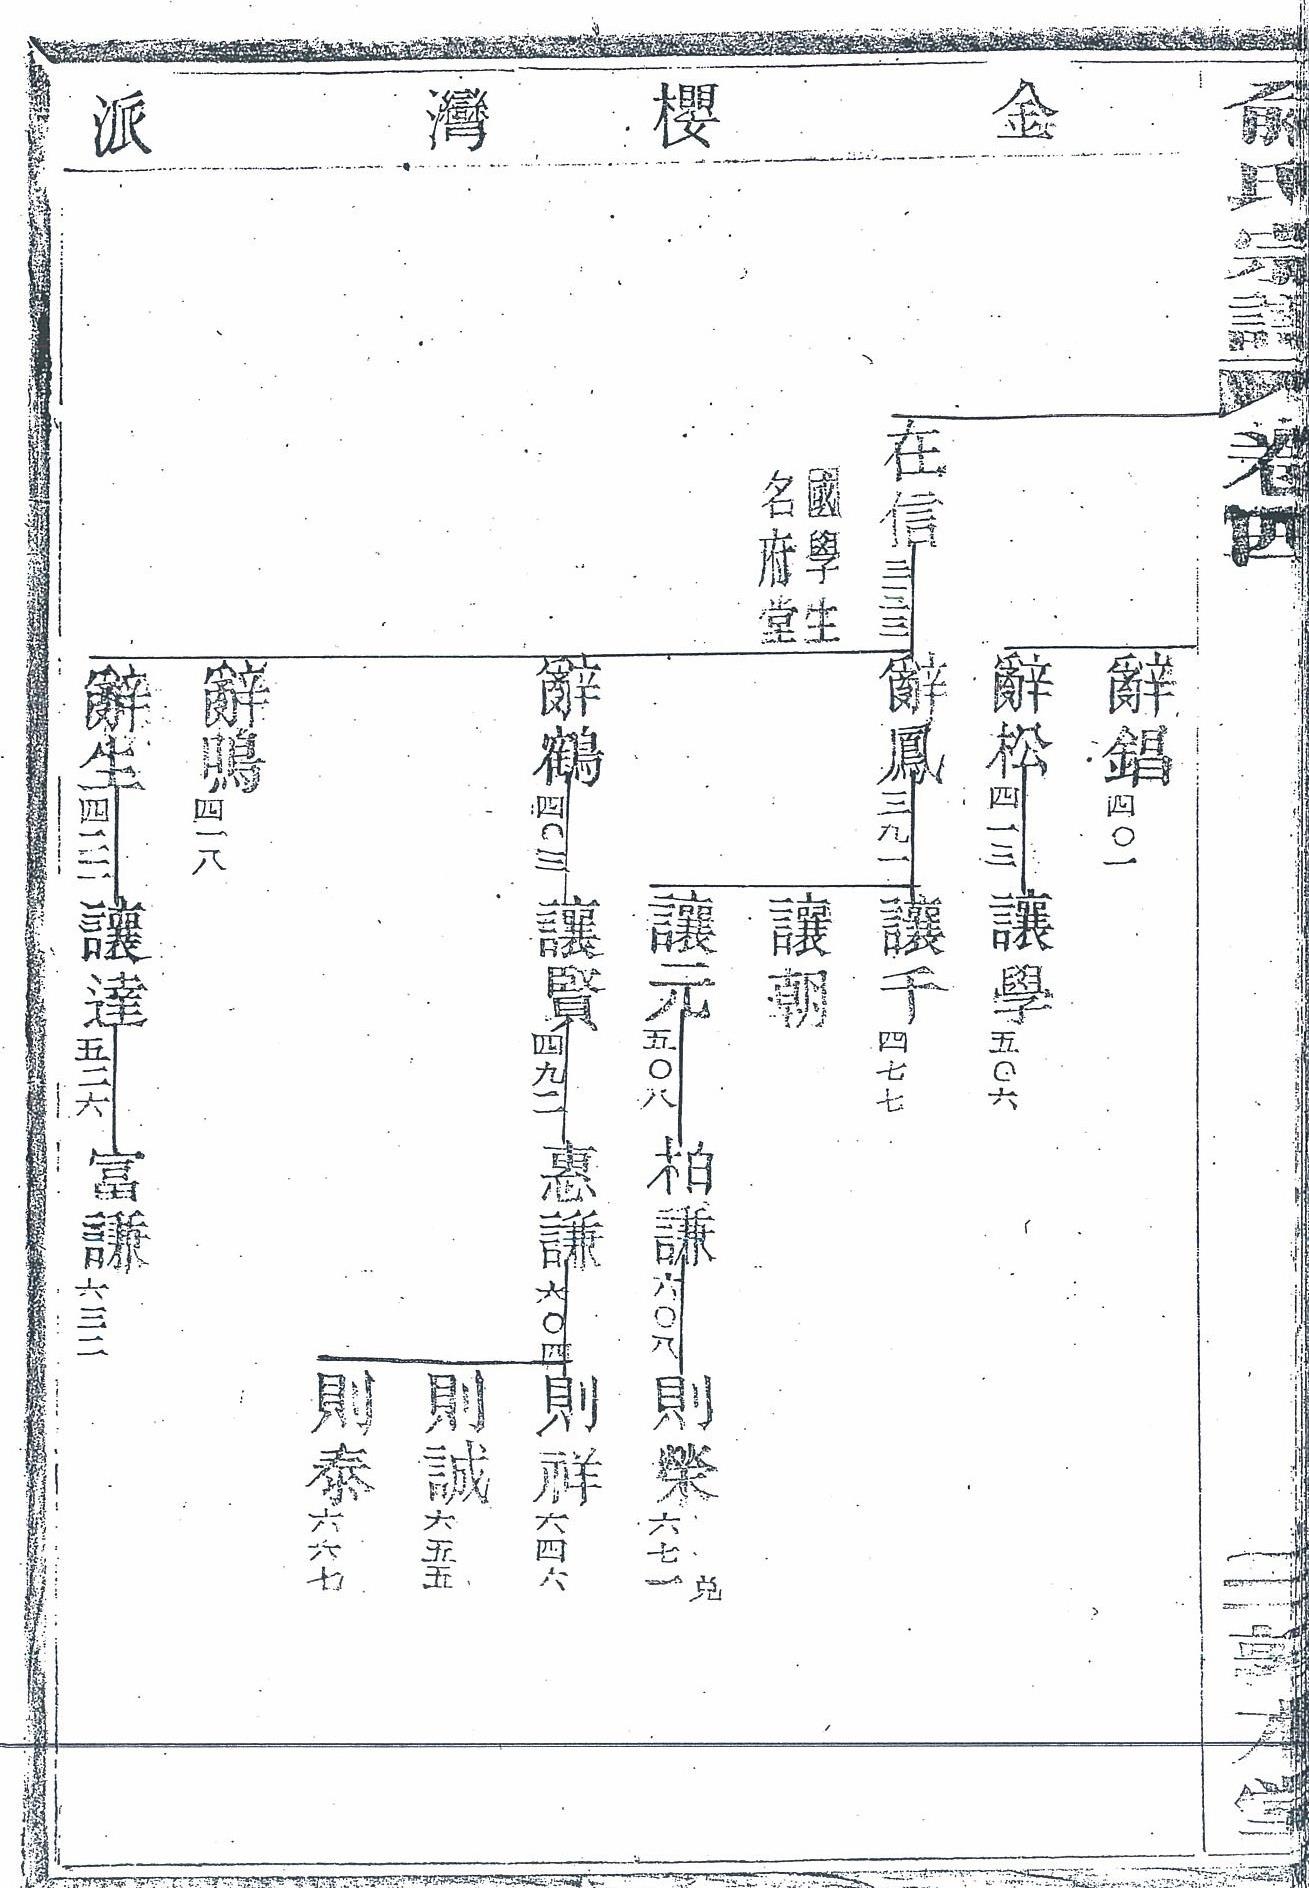 俞氏宗譜
卷四
金櫻灣派
在信
三三三
國學生
名府堂
辭錩
四〇一
辭松
四一三
辭鳳
三九一
辭鶴
四〇三
辭鳴
四一八
辭生
讓學
五〇六
讓千
四七七
讓朝
讓元
五〇八
讓賢
四九二
讓達
五二六
柏謙
六〇八
惠謙
六〇四
富謙
六三二
則榮
六七一
兑
則祥
六四六
則誠
六五五
則泰
六六七